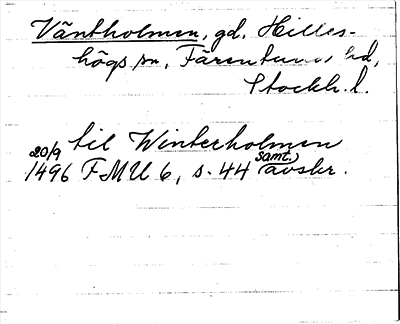 Väntholmen, gd, Hilles-
högs sn, Färentuna hd,
Stockh. l.
til Winterholmen
20/9 1496 FMU 6, s. 44 (samt.) avskr.